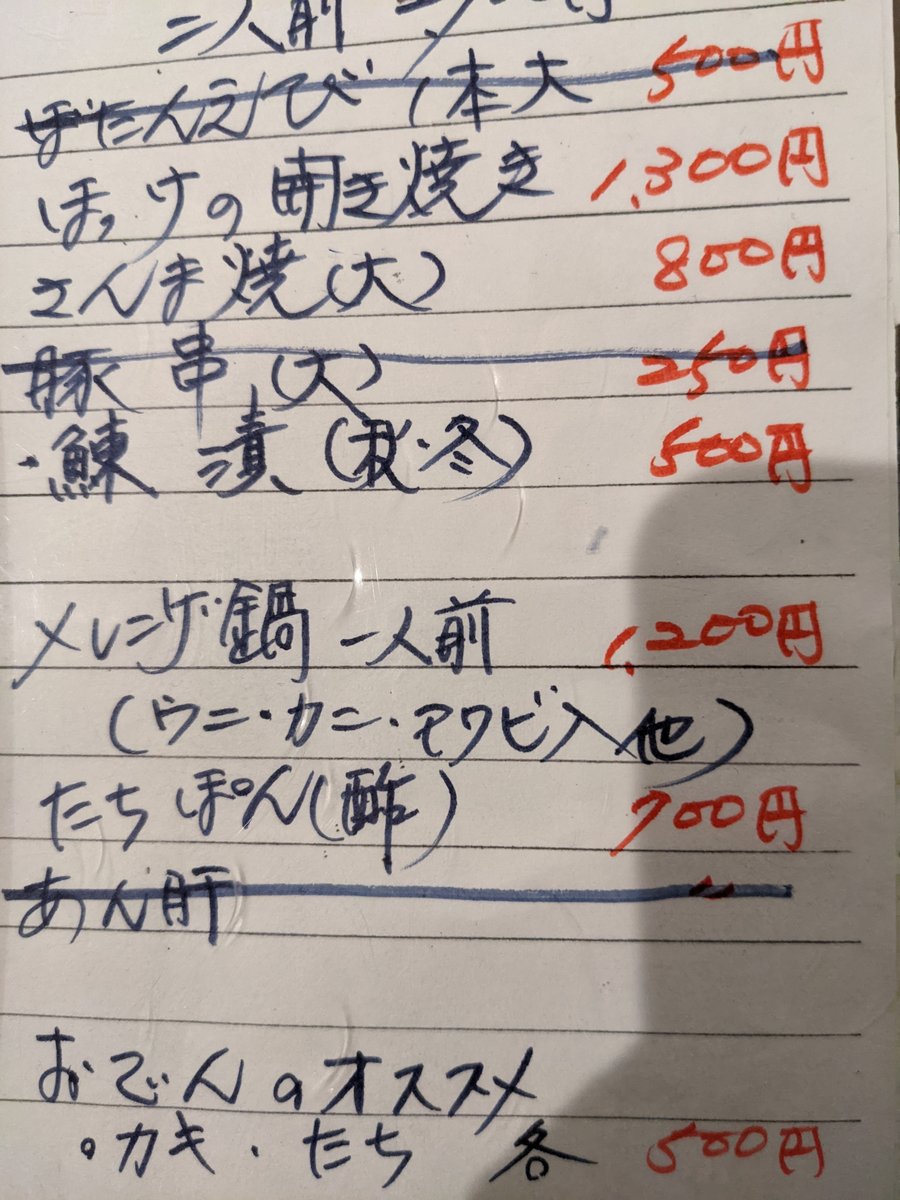 二人前
ぼたんえび 1本大 500円
ほっけの開き焼き 1,300円
さんま焼(大) 800円
豚串(大) 250円
・鰊漬(秋・冬) 500円
メレンゲ鍋 一人前 1,200円
(ウニ・カニ・アワビ入 他)
たちぽん(酢) 700円
あん肝 〃
おでんのオススメ
・カキ・たち 各 500円